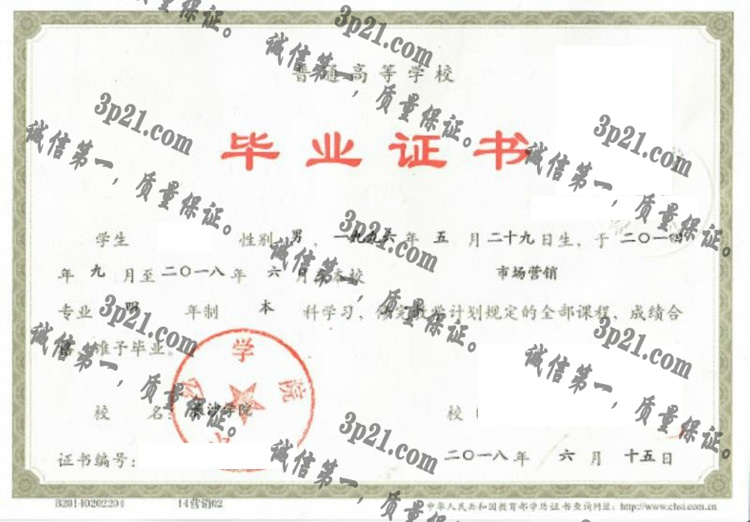 普通高等学校
毕业证书
学生 性别 男 ，一九九六 年 五 月 二十九日生，于 二〇一四
年 九 月至 二〇一八 年 六 月 在本校 市场营销
专业 四 年制 本 科学习，修完教学计划规定的全部课程，成绩合
格，准予毕业。
校 名： 长沙学院
校（
证书编号：
二〇一八 年 六 月 十五日
B20140202204 14营销02
中华人民共和国教育部学历证书查询网址：http://www.chsi.com.cn
3p21.com
诚信第一，质量保证。
3p21.com
诚信第一，质量保证。
3p21.com
诚信第一，质量保证。
3p21.com
诚信第一，质量保证。
3p21.com
诚信第一，质量保证。
3p21.com
诚信第一，质量保证。
3p21.com
诚信第一，质量保证。